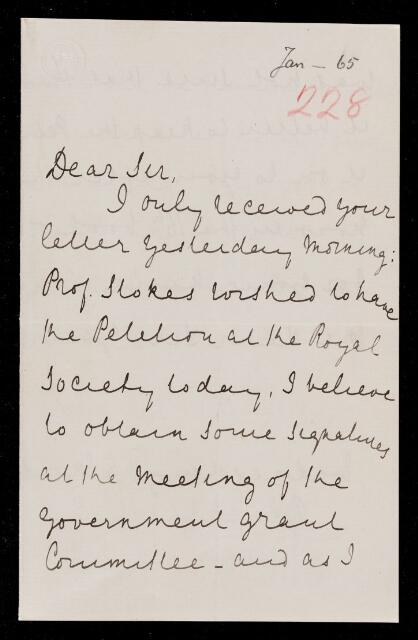 Jan - 65
228
Dear Sir,
I only received your
letter yesterday morning:
Prof. Stokes wished to have
the Petition at the Royal
Society today, I believe
to obtain some signatures
at the meeting of the
Government grant
Committee - and as I